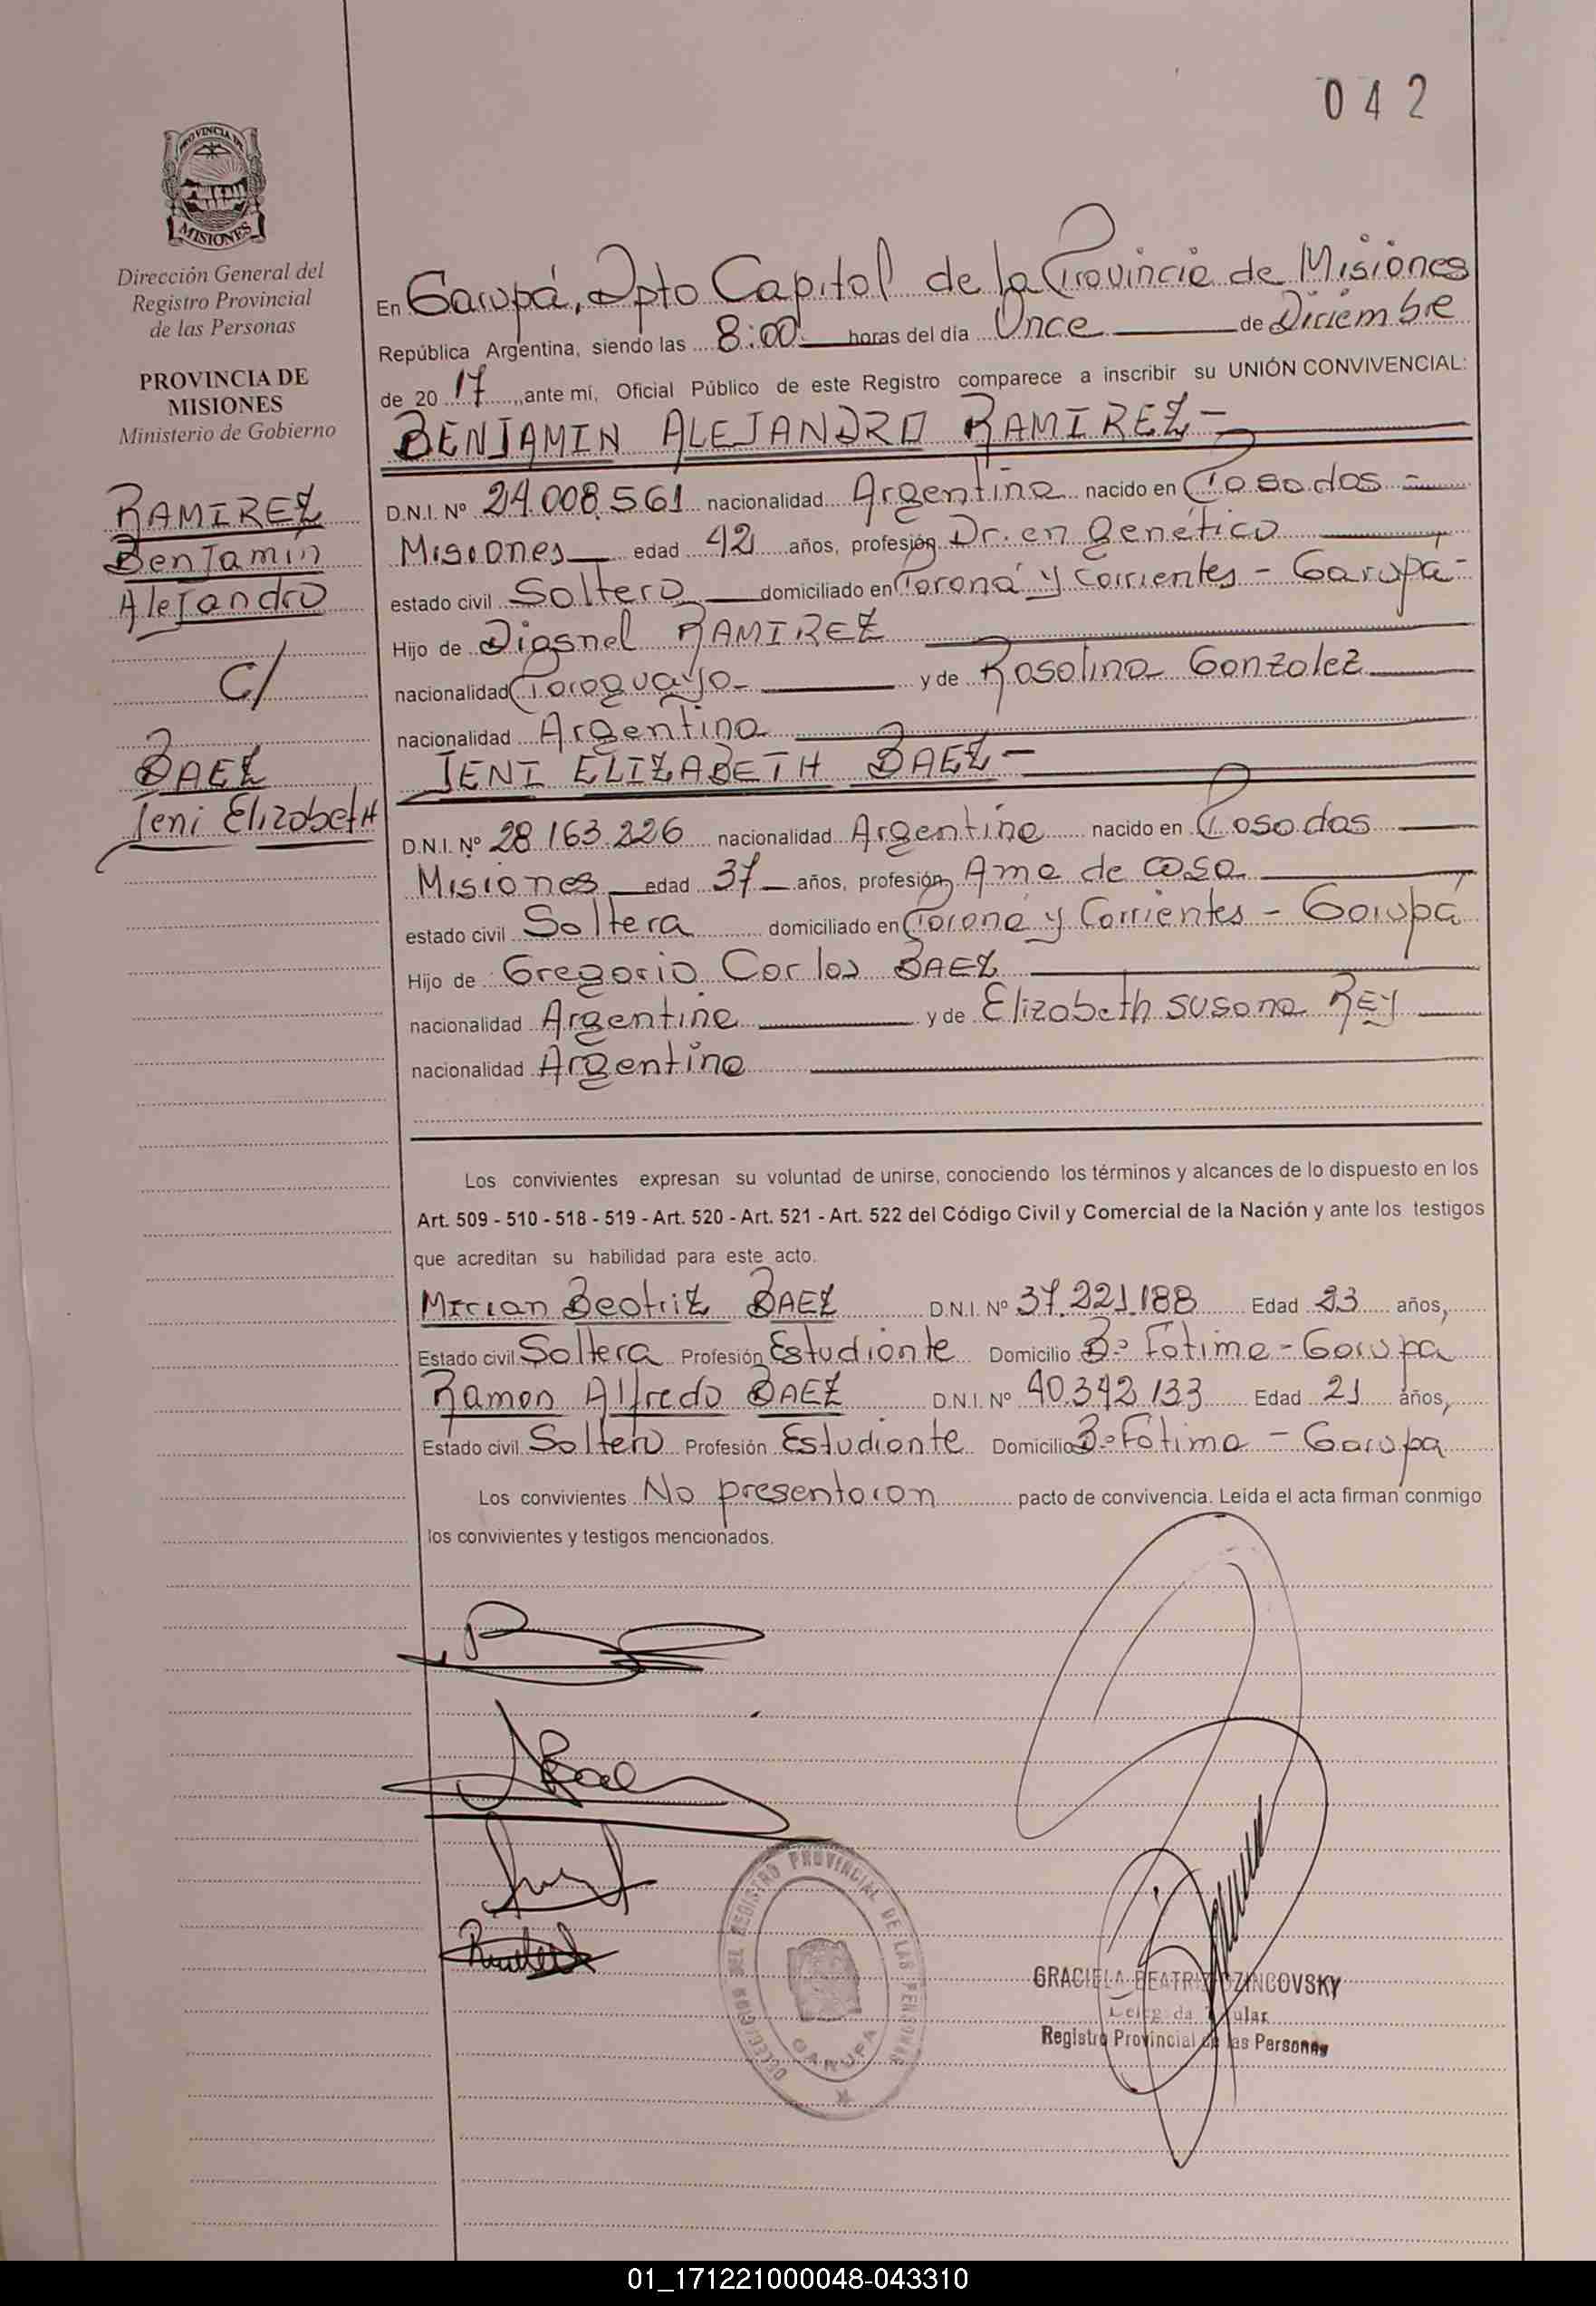 042
PROVINCIA DE
MISIONES
Dirección General del
Registro Provincial
de las Personas
PROVINCIA DE
MISIONES
Ministerio de Gobierno
RAMIREZ
Benjamin
Alejandro
C/
BAEZ
Jeni Elizabeth
En Garupá, Dpto Capital de la Provincia de Misiones
República Argentina, siendo las 8:00 horas del día Once de Diciembre
de 2017, ante mí, Oficial Público de este Registro comparece a inscribir su UNIÓN CONVIVENCIAL:
BENJAMIN ALEJANDRO RAMIREZ -
D.N.I. Nº 24.008.561 nacionalidad Argentina nacido en Posadas -
Misiones edad 42 años, profesión Dr. en Genética
estado civil Soltero domiciliado en Paraná y Corrientes - Garupá -
Hijo de Diosnel RAMIREZ
nacionalidad Paraguaya y de Rosalina Gonzalez
nacionalidad Argentina
JENI ELIZABETH BAEZ -
D.N.I. Nº 28.163.226 nacionalidad Argentina nacido en Posadas
Misiones edad 37 años, profesión Ama de casa
estado civil Soltera domiciliado en Paraná y Corrientes - Garupá
Hijo de Gregorio Carlos BAEZ
nacionalidad Argentina y de Elizabeth Susana REY
nacionalidad Argentina
Los convivientes expresan su voluntad de unirse, conociendo los términos y alcances de lo dispuesto en los
Art. 509 - 510 - 518 - 519 - Art. 520 - Art. 521 - Art. 522 del Código Civil y Comercial de la Nación y ante los testigos
que acreditan su habilidad para este acto.
Mirian Beatriz BAEZ D.N.I. Nº 37.221.188 Edad 23 años,
Estado civil Soltera Profesión Estudiante Domicilio Bº Fátima - Garupa
Ramon Alfredo BAEZ D.N.I. Nº 40.342.133 Edad 21 años,
Estado civil Soltero Profesión Estudiante Domicilio Bº Fátima - Garupa
Los convivientes No presentaron pacto de convivencia. Leída el acta firman conmigo
los convivientes y testigos mencionados.
DEL REGISTRO PROVINCIAL DE LAS PERSONAS
GARUPA
GRACIELA BEATRIZ
Registro Provincial de las Personas
01_171221000048-043310